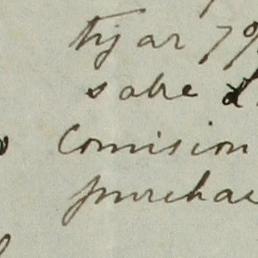 fijar 7%
sobre
Comision
purchas